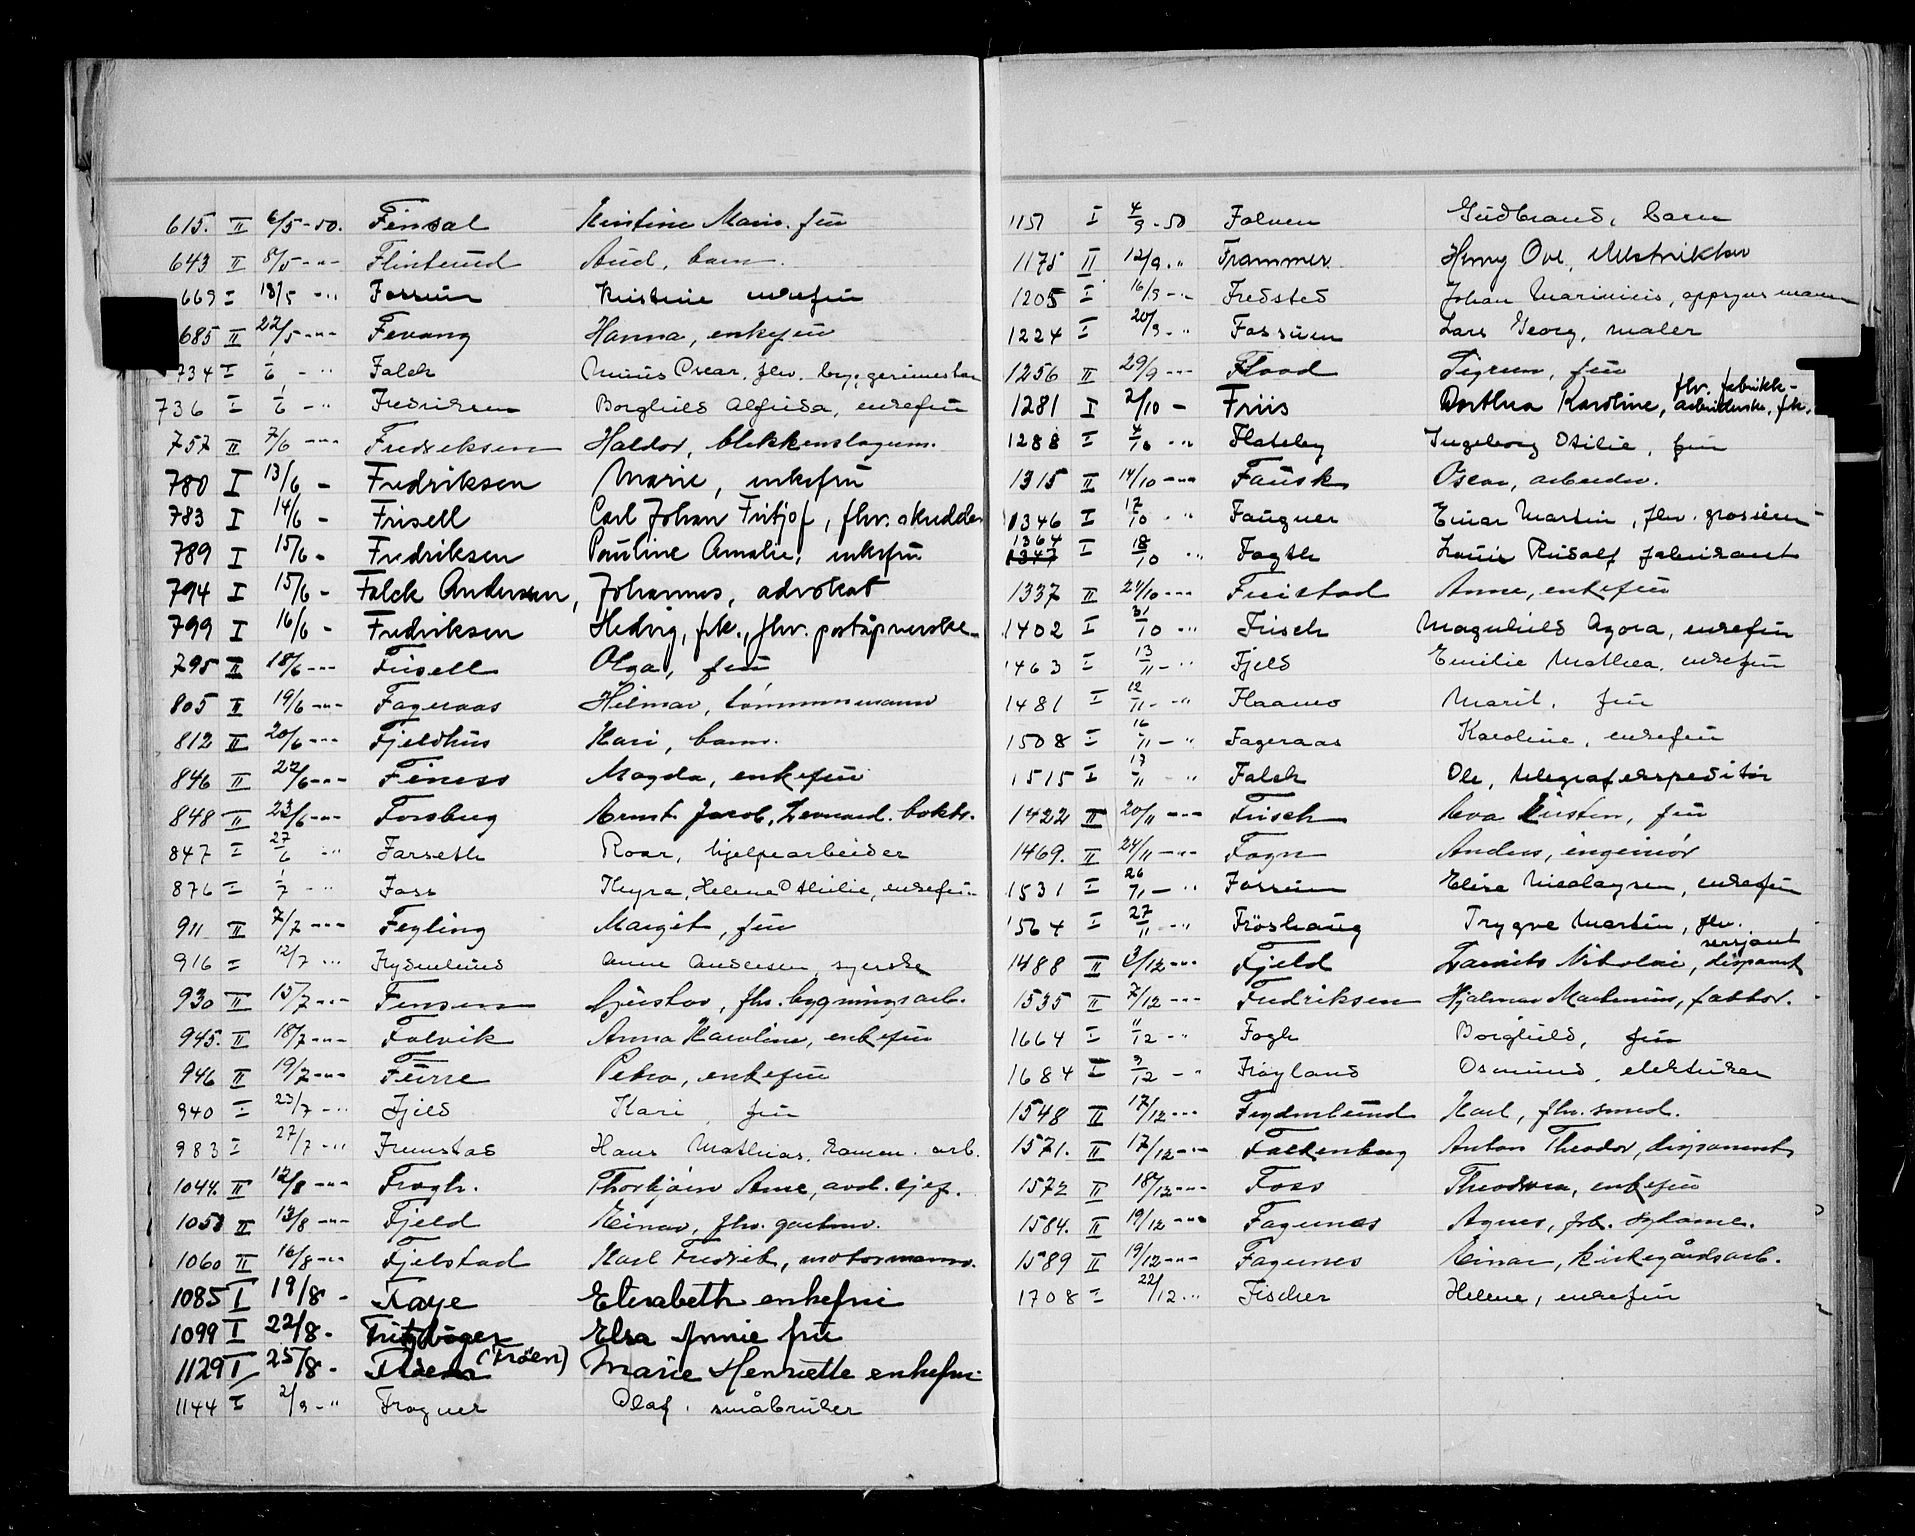 615. II 6/5-50. Finsal Kristine Marie. frü
643 II 8/5 -"- Flinterud Aud, barn.
669 I 18/5 -"- Fossum Kristine enkefrü
685 II 22/5 -"- Fevang Hanna, enkefrü
734 I 1/6 - " Falch Oscar. fhv. byggerimester
736 I 1/6 - " Fredriksen Borghild Alfrida, enkefrü
757 II 7/6 -"- Fredriksen Haldor, blikkenslagerm.
780 I 13/6 - Fredriksen Marie, enkefrü
783 I 14/6 - Frisell Carl Johan Fritjof, fhv. skredder
789 I 15/6 - Fredriksen Pauline Amalie, enkefrü
794 I 15/6 - Falck Andersen, Johannes, advokat
799 I 16/6 - Fredriksen Hedvig, frk., fhv. poståpnerske
795 II 18/6 -"- Frisell Olga, frü
805 II 19/6 -"- Fageraas Hilmar, tømmermann
812 II 20/6 -"- Fjeldhus Kari, barn.
846 II 22/6 -"- Finess Magda, enkefrü
848 II 23/6 -"- Forsberg Ernst Jacob, Leonard. boktr.
847 I 27/6 " Farseth Roar, hjelpearbeider
876 I 1/7 - " Foss Thyra, Helene Othilie, enkefrü
911 II 7/7 -"- Fegling Margit, frü
916 I 12/7 -"- Frydenlund Anne Andersen, syerske
930 II 15/7 -"- Fensen Gustav, fhv. bygningsarb.
945. II 18/7 -"- Folvik Anna Karoline, enkefrü
946 II 19/7 -"- Fürre Petra, enkefrü
940 I 23/7 - " Fjeld Kari frü
983 I 27/7 - " Frenstad Hans Mathias, kommn. arb.
1044. II 12/8 -"- Fragh. Thorbjørn Arne, avd. sjef.
1050 II 13/8 -"- Fjeld Einar, fhv. gartner.
1060 II 16/8 -"- Fjelstad Karl Fredrik, motormann.
1085 I 19/8 - Faye Elisabeth enkefru
1099 I 22/8 - Fritzbøger Elsa Annie frü
1129 I 25/8 - Frøen (Frøen) Marie Henriette enkefru
1144 I 2/9 - " Frogner Olaf, småbruker
1151 I 4/9 - 50 Folven Gudbrand, barn
1175 II 12/9 . " Frammer Henry Ove
1205 I 16/9 - " Fredsted Johan Marinius, oppsynsmann
1224 I 20/9 - " Fossüm Lars Georg, maler
1256 II 29/9 -"- Flood Sigrun, frü
1281 I 2/10 - Friis Dorthea Karoline, fhv. fabrikk-
arbeiderske, frk.
1288 I 4/10 " Flateby Ingeborg Otilie, frü
1315 II 14/10 -"- Fausk Oscar, arbeider.
1346 I 17/10 " Faugner Einar Martin, fhv. grosserer
1364
1347 I 18/10 " Fagth Louis Rudolf fabrikant
1337 II 24/10 -"- Freistad Anne, enkefrü
1402 I 31/10 - " Frisch Magnhild Agora, enkefrü
1463 I 13/11 - " Fjeld Emilie Mathea, enkefrü
1481 I 12/11 - " Flaamo Marit, frü
1508 I 16/11 - " Fageraas Karoline, enkefrü
1515 I 17/11 " Falch Ole, telegrafekspeditør
1422 II 20/11 -"- Frisch Eva Kirsten, frü
1469. II 24/11 -"- Fagn Anders, ingeniør
1531 I 26/11 - " Fossum Elise Nicolaysen, enkefrü
1564 I 27/11 - " Frøshaug Trygve Martin, fhv.
sersjant
1488 II 3/12 -"- Fjeld Lauritz Nikolai, disponent
1535 II 7/12 -"- Fredriksen Hjalmar Mathinius, faktor.
1664 I 11/12 - " Fogh Borghild, frü
1684 I 3/12 - " Frøyland Osmund, elektriker
1548 II 17/12 -"- Frydenlund Karl, fhv. smed.
1571. II 17/12 -"- Falkenberg Anton Theodor, disponent
1572 II 18/12 -"- Foss Theodora, enkefrü
1584. II 19/12 -"- Fagernes Agnes, frk. sydame.
1589 II 19/12 -"- Fagernes Einar, kirkegårdsarb.
1708 I 22/12 . " Fischer Helene, enkefrü